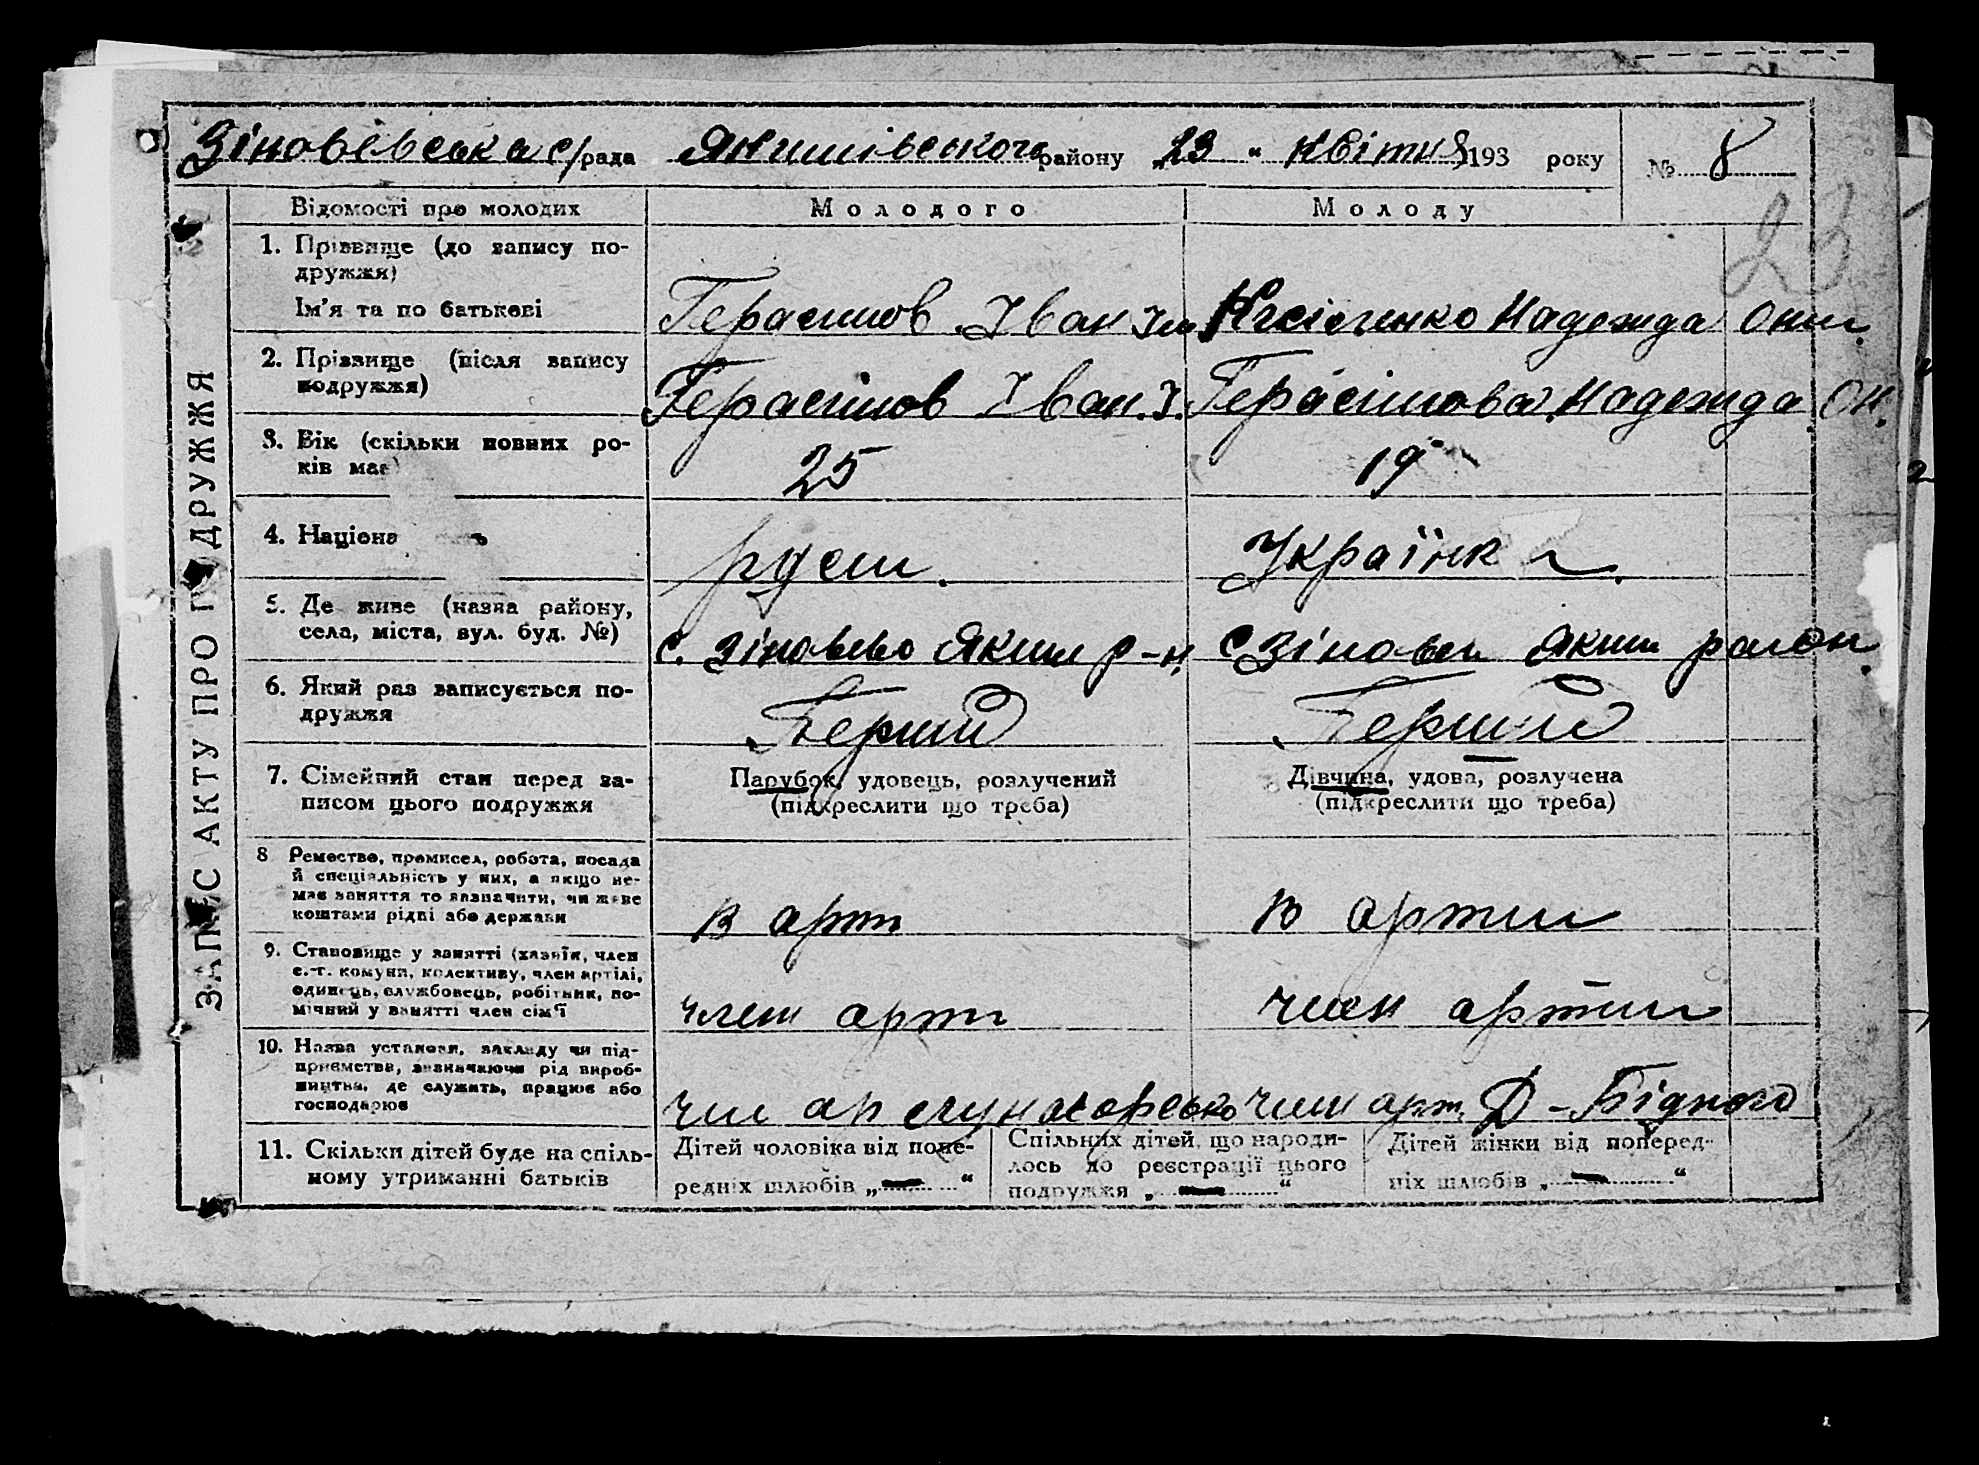 Зіновєвська с/рада Якимівського району „23" квітня 193 року № 8
23
ЗАПИС АКТУ ПРО ПОДРУЖЖЯ
Відомості про молодих Молодого Молоду
1. Прізвище (до запису по-
дружжя)
Ім'я та по батькові
Герасимов Іван Надежда Они.
2. Прізвище (після запису
подружжя)
Герасімов Іван. І. Герасімова Надежда Он.
3. Вік (скільки повних ро-
ків має)
25 19
4. Націона ь
руси. Українк
5. Де живе (назва району,
села, міста, вул. буд. №)
с. Зіновєво Яким р-н с Зіновєв Яким район.
6. Який раз записується по-
дружжя
Перший Перший
7. Сімейний стан перед за-
писом цього подружжя
Парубок, удовець, розлучений
(підкреслити що треба)
Дівчина, удова, розлучена
(підкреслити що треба)
8 Ремество, промисел, робота, посада
й спеціяльність у них, а якщо не-
має заняття то зазначити, чи живе
коштами рідні або держави
в арт в артии
9. Становище у занятті (хазяїн, член
с.-г. комуни, колективу, член артілі,
одинець, службовець, робітник, по-
мічний у занятті член сім'ї
член арти член артии
10. Назва установи, закладу чи під-
приємства, зазначаючи рід вироб-
ництва, де служить, працює або
господарює
чл ар член арт. Д-Бідного
11. Скільки дітей буде на спіль-
ному утриманні батьків
Дітей чоловіка від попе-
редніх шлюбів „—"
Спільних дітей, що народи-
лось до реєстрації цього
подружжя „—"
Дітей жінки від поперед-
ніх шлюбів „—"